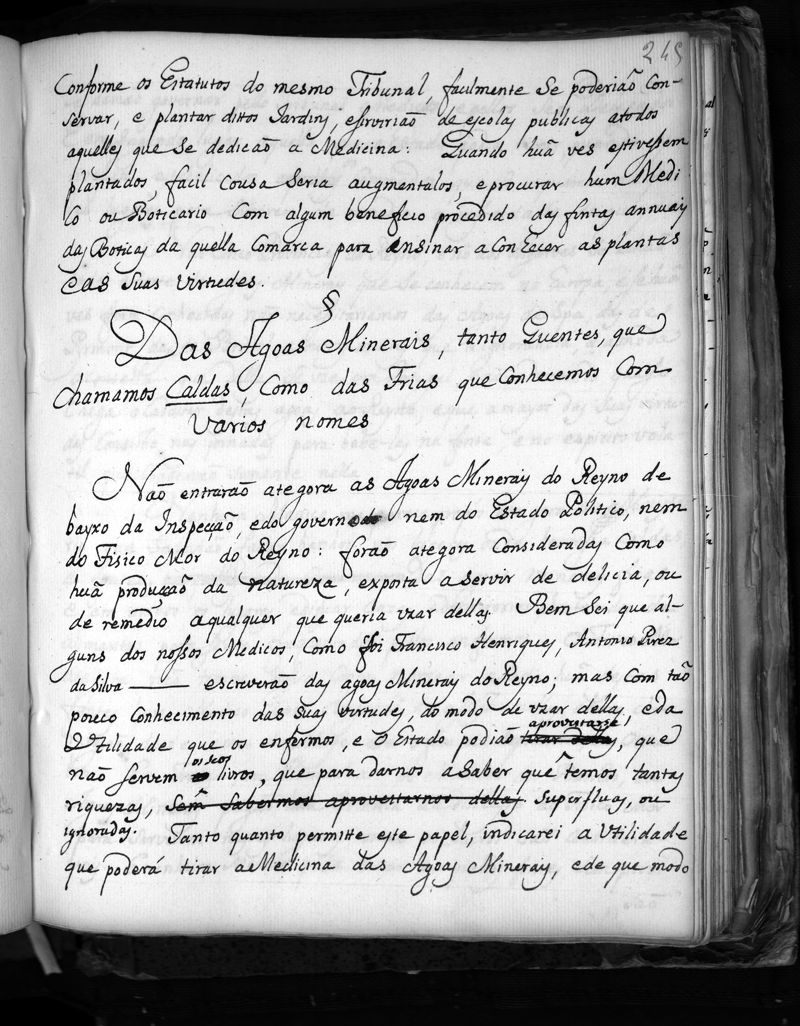 245
Conforme os Estatutos do mesmo Tribunal, facilmente se poderiaõ Con-
servar, e plantar dittos Jardins, eservirião de escolas publicas atodos
aquelles que se dedicaõ a Medicina: Quando huã ves estivessem
plantados, facil Cousa seria augmentalos, eprocurar hum Medi-
co ou Boticario Com algum beneficio procedido das fintas annuais
das Boticas da quella Comarca para ensinar a Conhecer as plantas
e as suas virtudes.
§
Das Agoas Minerais, tanto Quentes, que
Chamamos Caldas, Como das Frias que Conhecemos Com
varios nomes
Naõ entraraõ ategora as Agoas Minerais do Reyno de
bayxo da Inspecçaõ, edo governo nem do Estado Politico, nem
do Fisico Mor do Reyno: foraõ ategora Consideradas Como
huã producçaõ da natureza, exposta a servir de delicia, ou
de remedio aqualquer que queria uzar dellas. Bem sei que al-
guns dos nossos Medicos, Como foi Francisco Henriques, Antonio Pirez
da Silva —— escreveraõ das agoas Minerais do Reyno; mas Com taõ
pouco Conhecimento das suas virtudes, do modo de uzar dellas, eda
Utilidade que os enfermos, e o Estado podiaõ tirar dellas aproveitarsse, que
naõ servem os seos livros, que para darnos a saber que temos tantas
riquezas, sem sabermos aproveitarnos dellas. superfluas, ou
ignoradas. Tanto quanto permitte este papel, indicarei a Utilidade
que poderá tirar a Medicina das Agoas Minerais, ede que modo